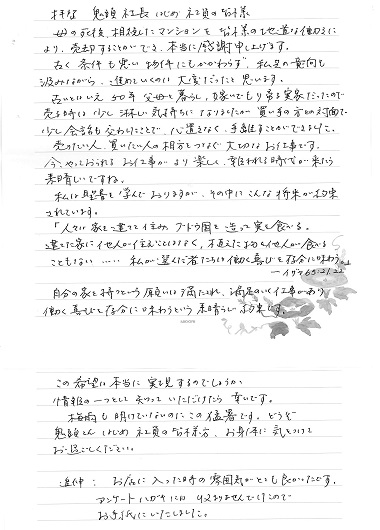 社長はじめ社員の皆様
母の死後、相続したマンションを皆様の地道な働きに
より、売却することができ、本当に感謝申し上げます。
古く条件も悪い物件にもかかわらず、私足の意向も
汲みながら、進めていくのは大変だったと思います。
古いとはいえ50年父母と暮らし、嫁いでもり実家だったので
売る時は少し淋しい気持ちになりましたが買い手の方との対面で
少し会話も交わしたことで、心置きなく、手離すことができました。
売りたい人、買いたい人の相方をつなぐ大切なお仕事です。
今、やっておられるお仕事がより楽しく、報われる時代が来たら
素晴しいですね。
私は聖書を学んでおりますが、その中にこんな将来が約束
されています。
「人々は家を建てて住み、ブドウ園を造って実を食べる。
建てた家に他人が住むということはなく、植えたものを他人が食べる
こともない …… 私が選んだ者たちは働く喜びを存分に味わう。」
ーイザヤ65:21,22
自分の家を持つという願いは満たされ、満足のいく仕事があり
働く喜びを存分に味わうという素晴らしい約束です。
この希望は本当に実現するのでしょうか
情報の一つとして知っていただけたら幸いです。
梅雨も明けていないのにこの猛暑です。どうぞ
はじめ社員の皆様方、お身体に気をつけて
お過ごしください。
追伸 : お店に入った時の雰囲気がとても良かったです。
アンケートハガキには収まりませんでしたので
お手紙にいたしました。